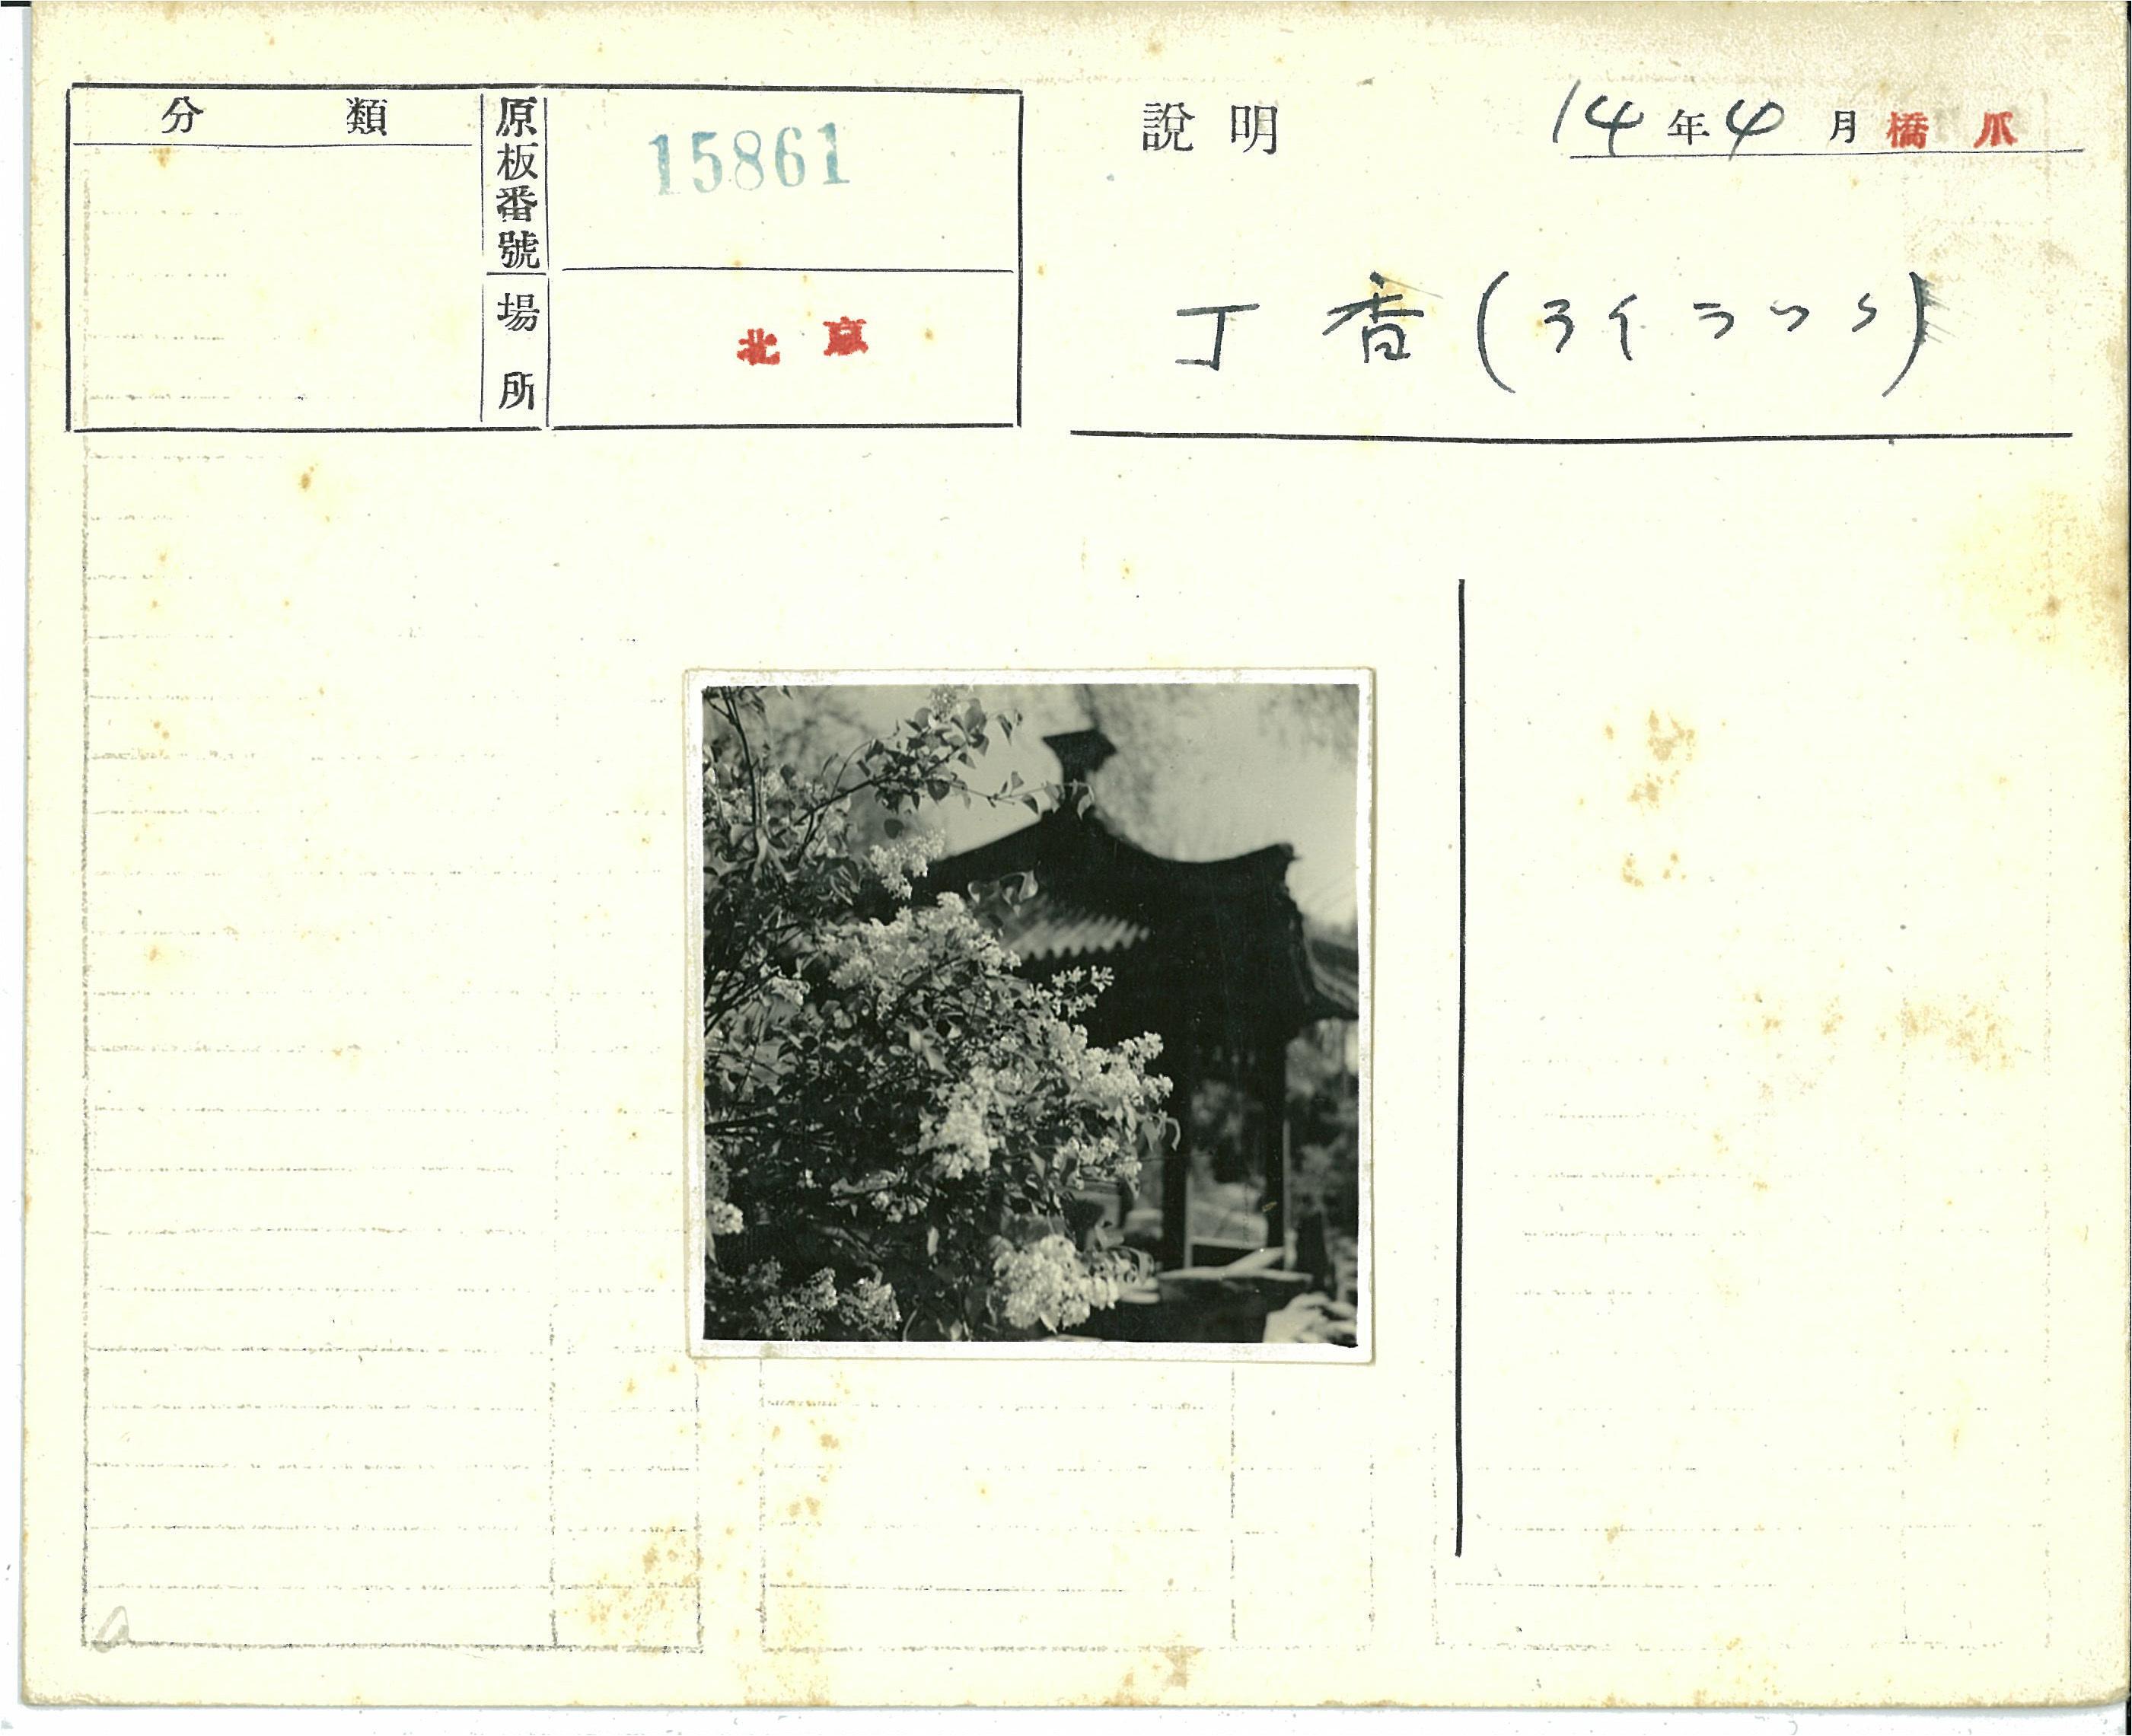 分類
原板番號 15861
場所 北京
說明 14年4月 橋爪
丁香(ライラック)
a